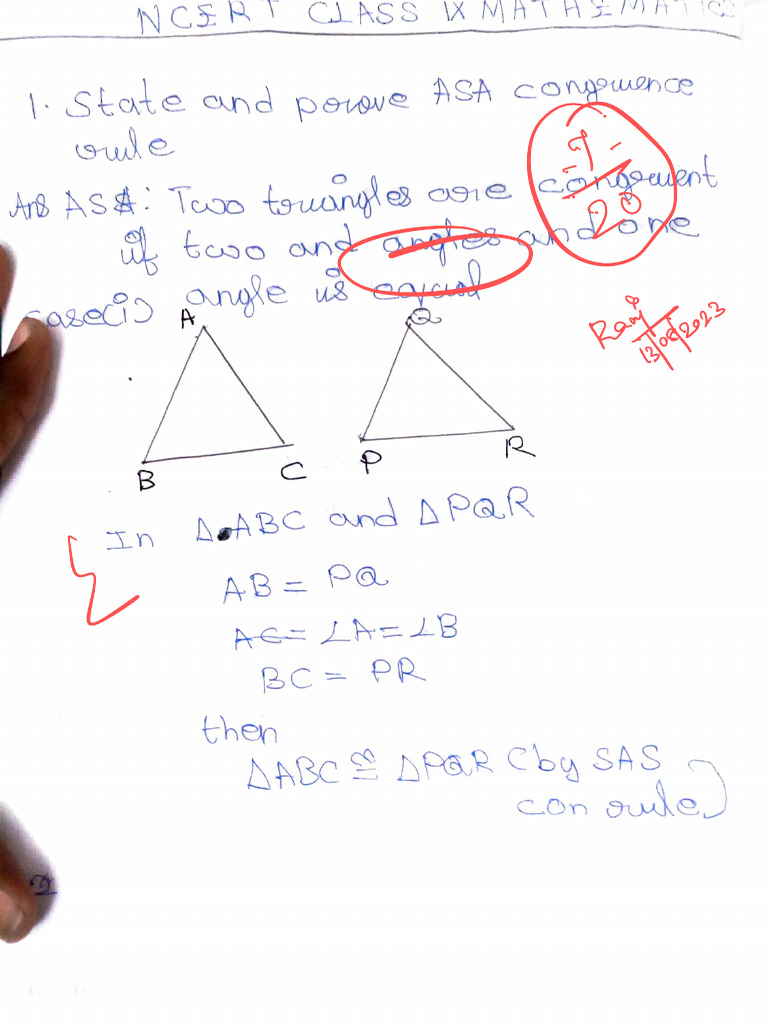 NCERT CLASS IX MATHEMATICS
1. State and prove ASA congruence
rule
Ans ASA: Two triangles are congruent
if two and angles and one
case(i) angle is equal
20
A
Q
13/06/2023
B
C
P
R
In ΔABC and ΔPQR
AB = PQ
AC= ∠A=∠B
BC = PR
then
ΔABC ≅ ΔPQR (by SAS
con rule)